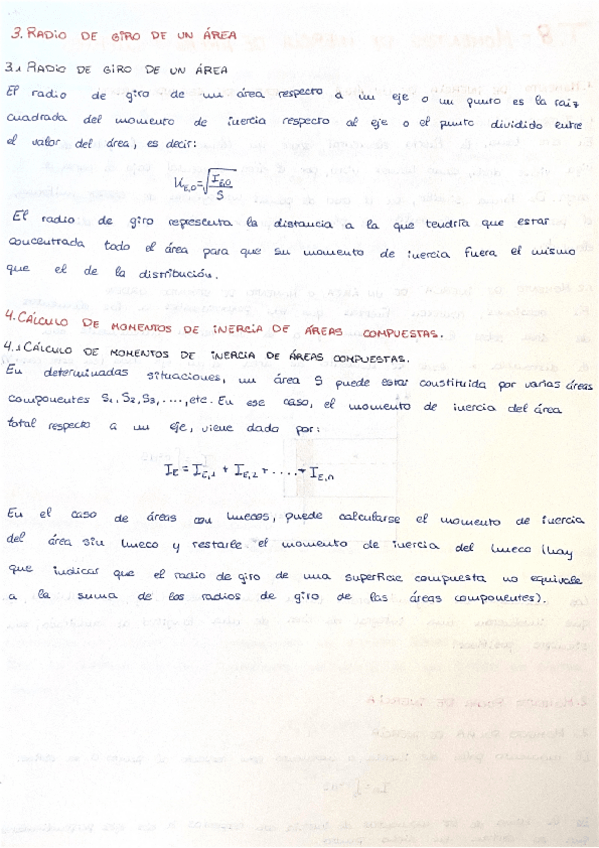 3. RADIO DE GIRO DE UN ÁREA
3.1 RADIO DE GIRO DE UN ÁREA
El radio de giro de un área respecto a un eje o un punto es la raiz
cuadrada del momento de inercia respecto al eje o el punto dividido entre
el valor del área, es decir:
K_{E,O} = \sqrt{\frac{I_{E,O}}{S}}
El radio de giro representa la distancia a la que tendría que estar
concentrada todo el área para que su momento de inercia fuera el mismo
que el de la distribución.
4. CÁLCULO DE MOMENTOS DE INERCIA DE ÁREAS COMPUESTAS.
4.1 CÁLCULO DE MOMENTOS DE INERCIA DE ÁREAS COMPUESTAS.
En determinadas situaciones, un área S puede estar constituida por varias áreas
componentes S1, S2, S3, ...., etc. En ese caso, el momento de inercia del área
total respecto a un eje, viene dado por:
I_E = I_{E,1} + I_{E,2} + .... + I_{E,n}
En el caso de áreas con huecos, puede calcularse el momento de inercia
del área sin hueco y restarle el momento de inercia del hueco (hay
que indicar que el radio de giro de una superficie compuesta no equivale
a la suma de los radios de giro de las áreas componentes).